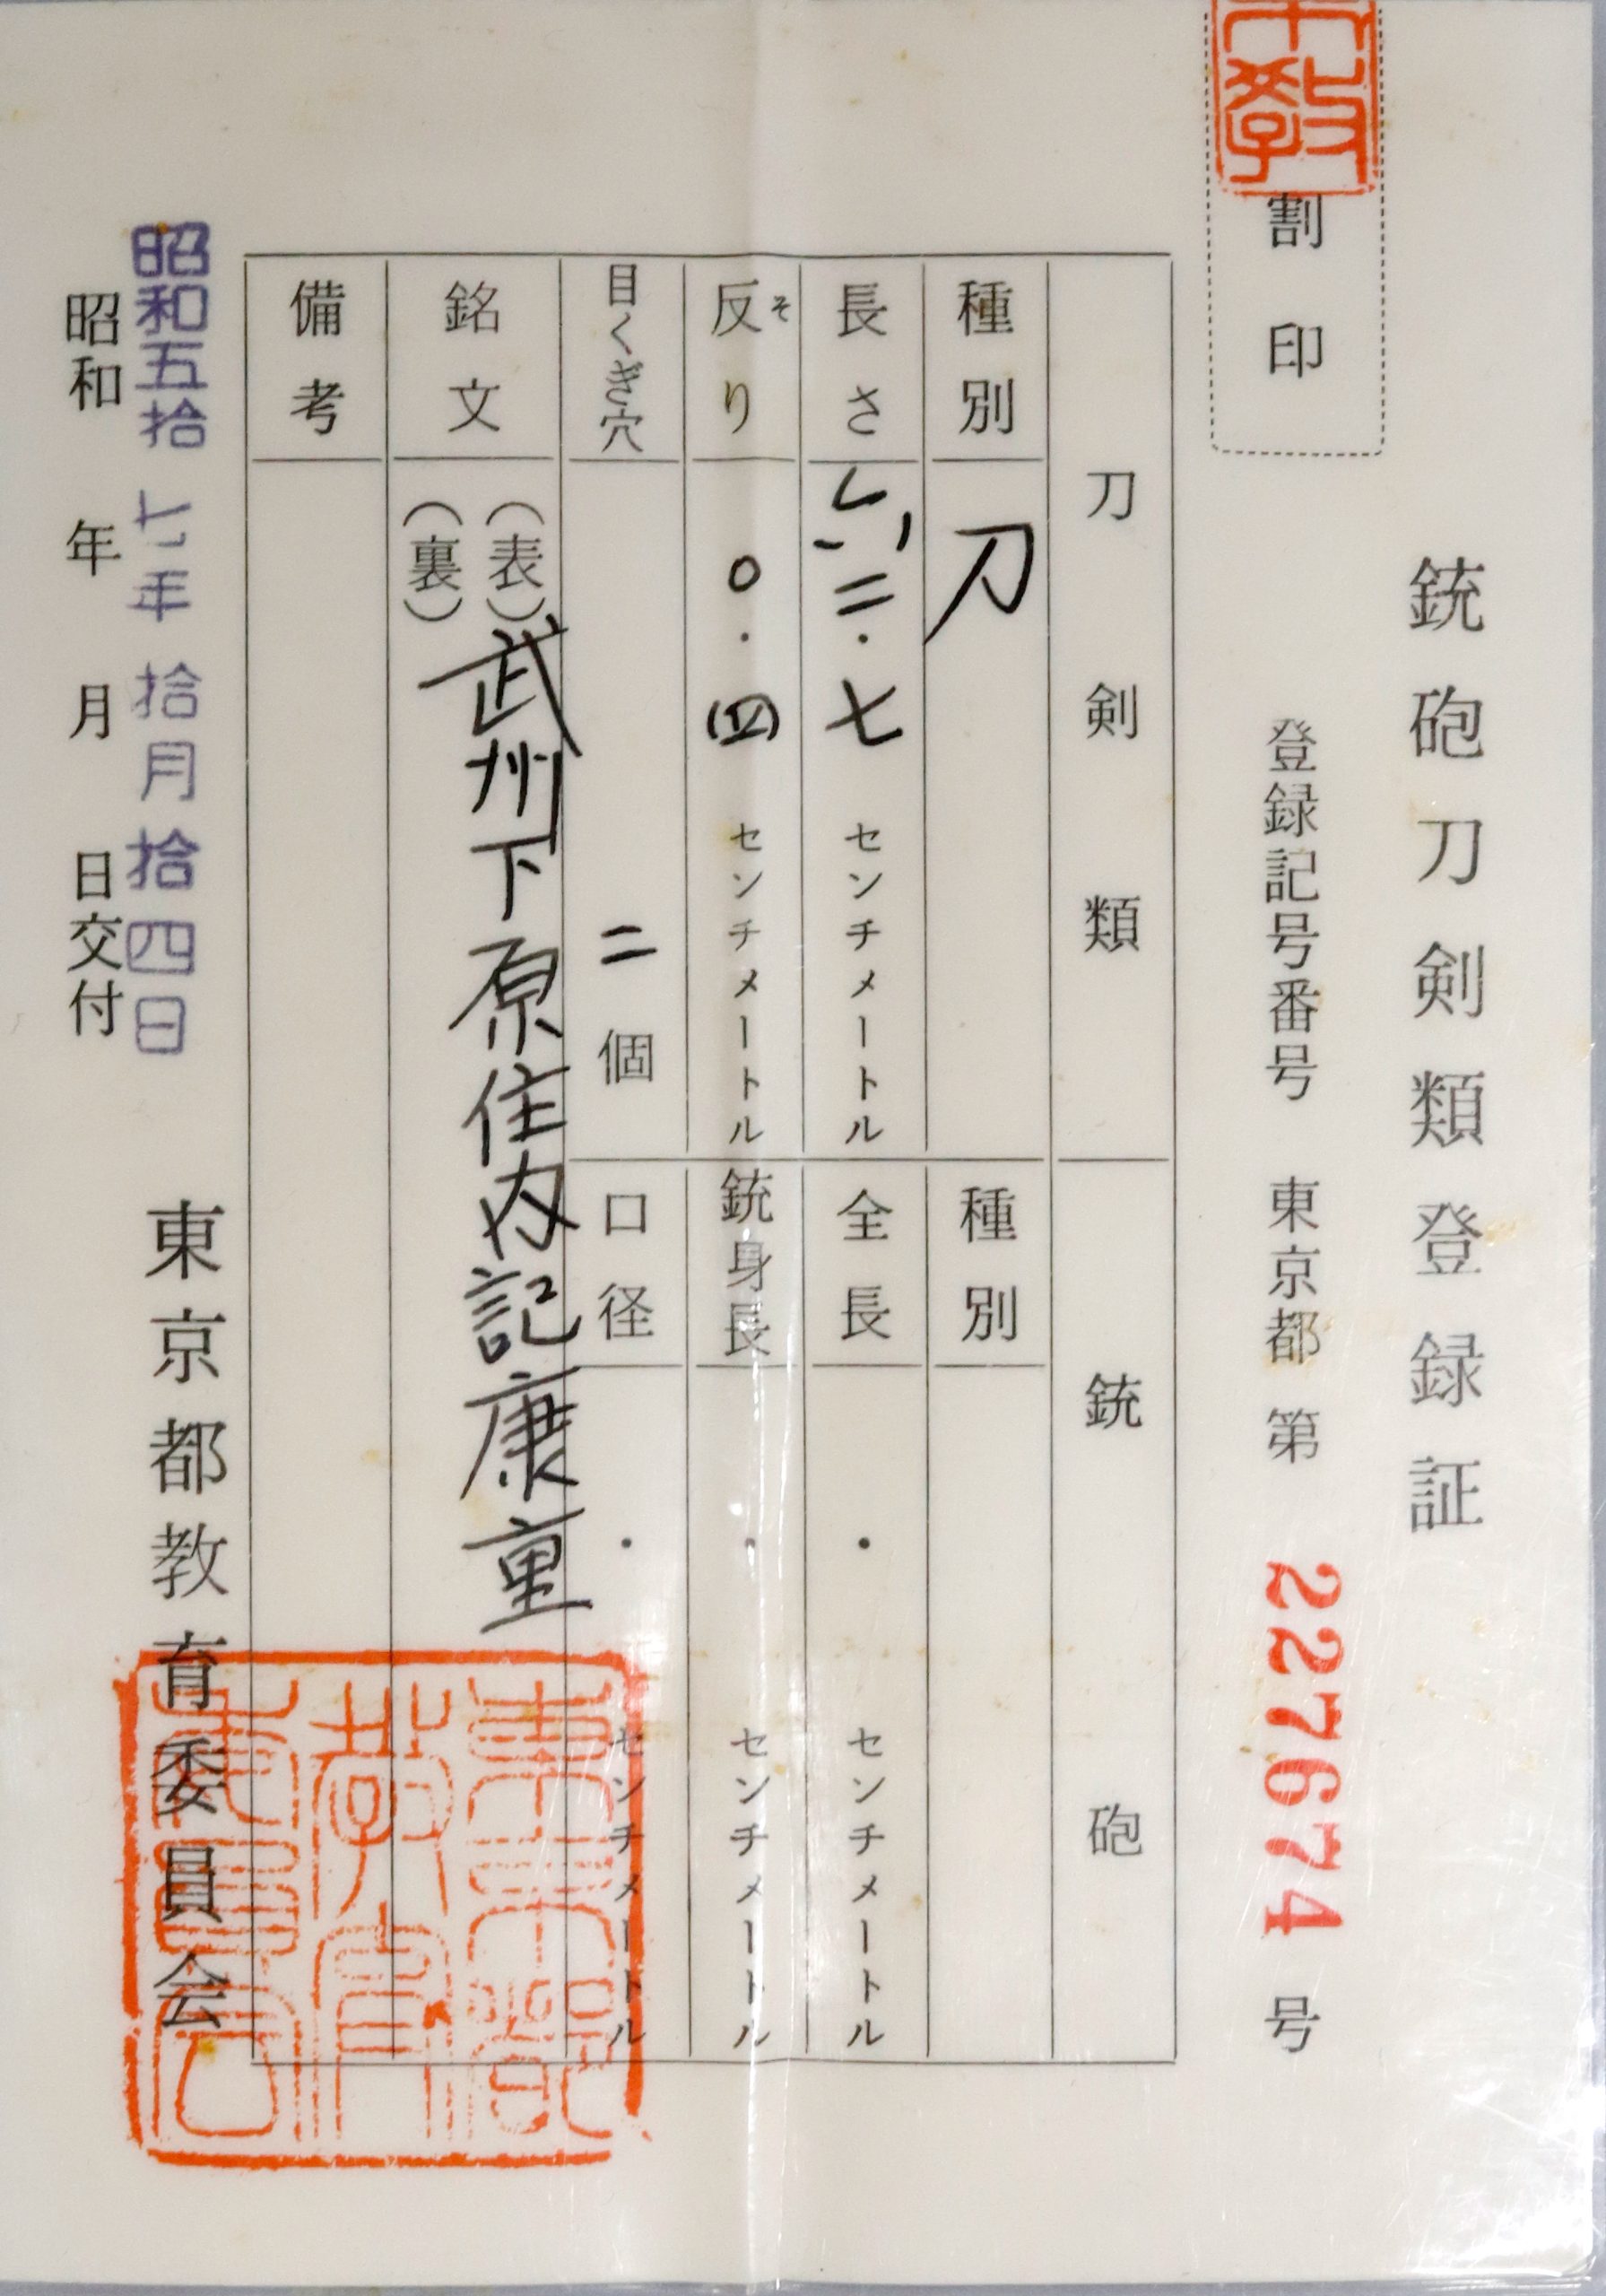 銃砲刀剣類登録証
割印
登録記号番号 東京都 第 227674 号
刀剣類
銃砲
種別 刀
種別
長さ 六二・七 センチメートル
全長 ・ センチメートル
反り そ 〇・四 センチメートル
銃身長 ・ センチメートル
目くぎ穴 二個
口径 ・ センチメートル
銘文 (表) 武州下原住内記康重
(裏)
備考
昭和五拾七年拾月拾四日
昭和 年 月 日交付
東京都教育委員会